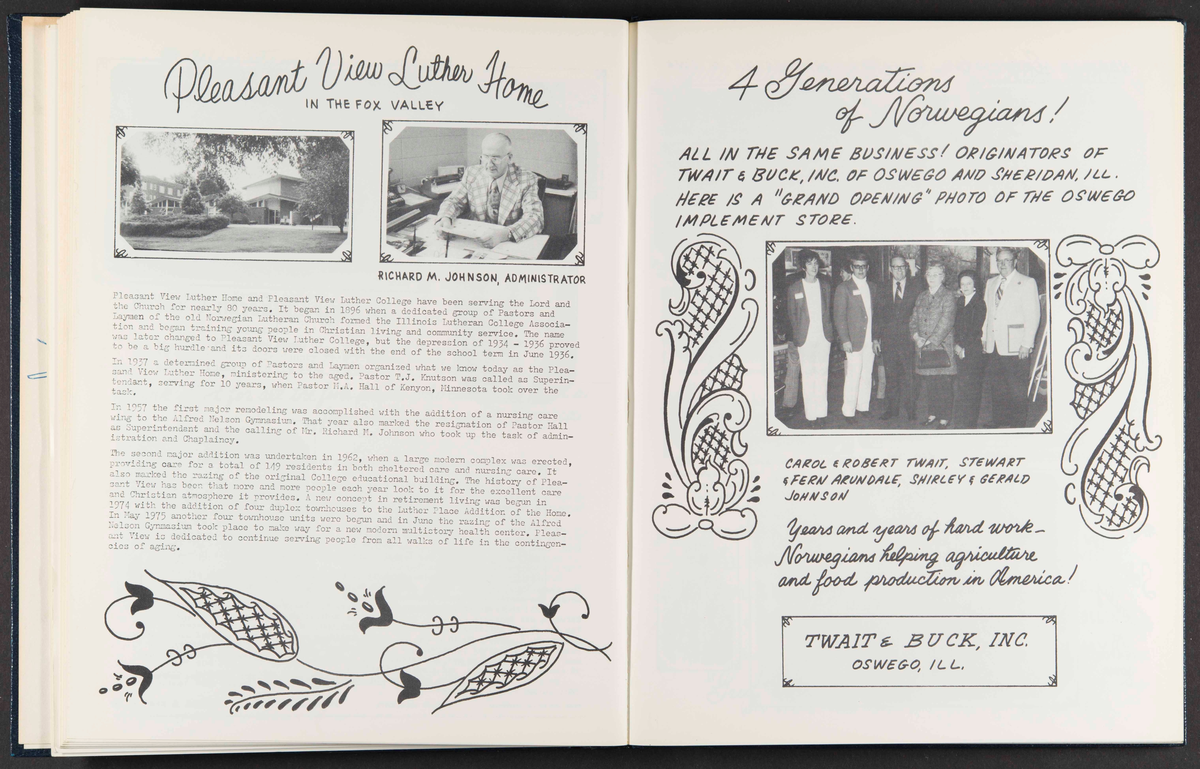 Pleasant View Luther Home
IN THE FOX VALLEY
RICHARD M. JOHNSON, ADMINISTRATOR
Pleasant View Luther Home and Pleasant View Luther College have been serving the Lord and
the Church for nearly 80 years. It began in 1896 when a dedicated group of Pastors and
Laymen of the old Norwegian Lutheran Church formed the Illinois Lutheran College Associa-
tion and began training young people in Christian living and community service. The name
was later changed to Pleasant View Luther College, but the depression of 1934 - 1936 proved
to be a big hurdle and its doors were closed with the end of the school term in June 1936.
In 1937 a determined group of Pastors and Laymen organized what we know today as the Plea-
sand View Luther Home, ministering to the aged. Pastor T.J. Knutson was called as Superin-
tendant, serving for 10 years, when Pastor M.A. Hall of Kenyon, Minnesota took over the
task.
In 1957 the first major remodeling was accomplished with the addition of a nursing care
wing to the Alfred Nelson Gymnasium. That year also marked the resignation of Pastor Hall
as Superintendent and the calling of Mr. Richard M. Johnson who took up the task of admin-
istration and Chaplaincy.
The second major addition was undertaken in 1962, when a large modern complex was erected,
providing care for a total of 149 residents in both sheltered care and nursing care. It
also marked the razing of the original College educational building. The history of Plea-
sant View has been that more and more people each year look to it for the excellent care
and Christian atmosphere it provides. A new concept in retirement living was begun in
1974 with the addition of four duplex townhouses to the Luther Place Addition of the Home.
In May 1975 another four townhouse units were begun and in June the razing of the Alfred
Nelson Gymnasium took place to make way for a new modern multistory health center. Pleas-
ant View is dedicated to continue serving people from all walks of life in the contingen-
cies of aging.
4 Generations
of Norwegians!
ALL IN THE SAME BUSINESS! ORIGINATORS OF
TWAIT & BUCK, INC. OF OSWEGO AND SHERIDAN, ILL.
HERE IS A "GRAND OPENING" PHOTO OF THE OSWEGO
IMPLEMENT STORE.
CAROL & ROBERT TWAIT, STEWART
& FERN ARUNDALE, SHIRLEY & GERALD
JOHNSON
Years and years of hard work—
Norwegians helping agriculture
and food production in America!
TWAIT & BUCK, INC.
OSWEGO, ILL.